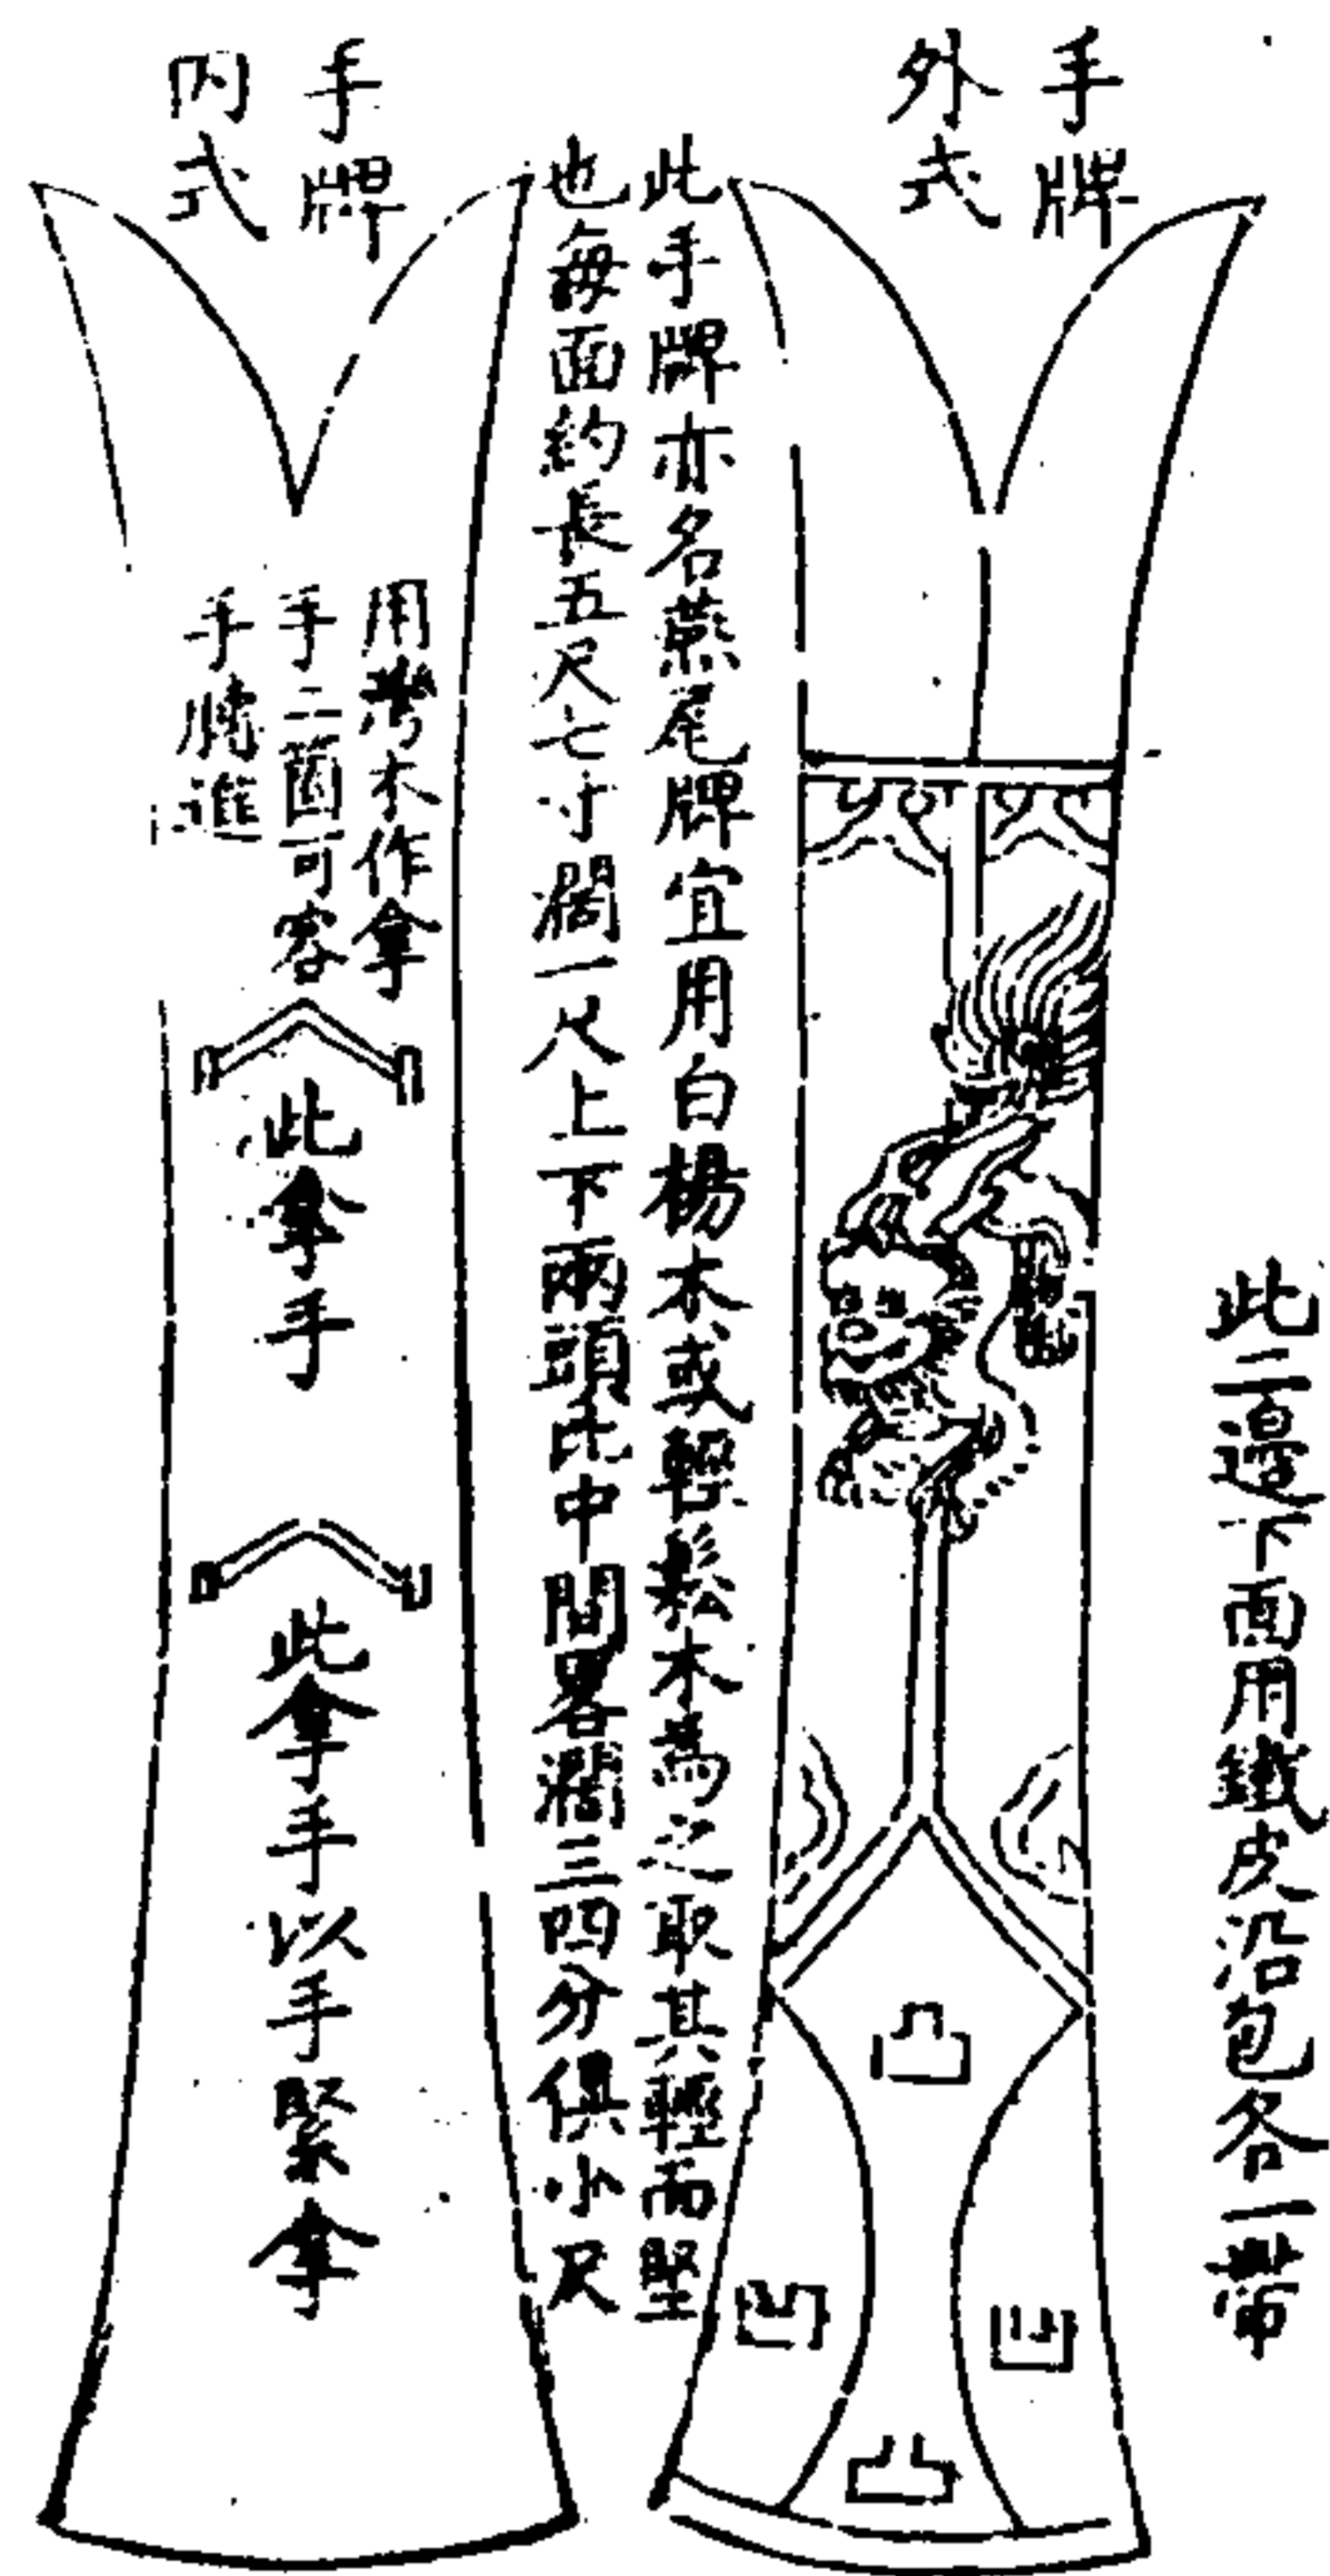 手牌
外式
此二邊下面用鐵皮沿包各一帶
凸
凹
凹
凸
此手牌亦名燕尾牌宜用白楊木或輕鬆木爲之取其輕而堅
也每面約長五尺七寸濶一尺上下兩頭比中間畧濶三四分俱小尺
手牌
內式
用灣木作拿
手二箇可容
手腕進
此拿手
此拿手以手緊拿